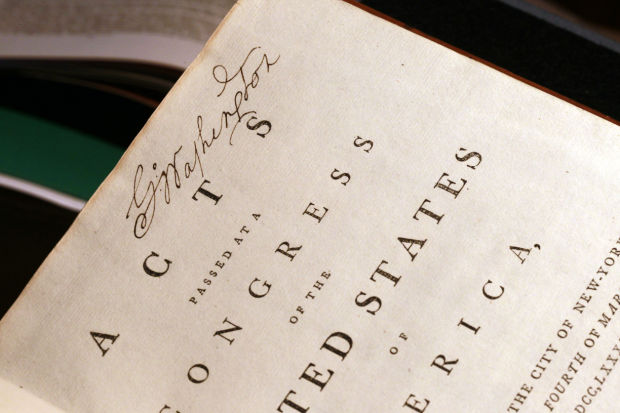 G:Washington
ACTS
PASSED AT A
ONGRESS
OF THE
TED STATES
OF
ERICA,
THE CITY OF NEW-YORK
FOURTH OF MAR
DCC,LXXX